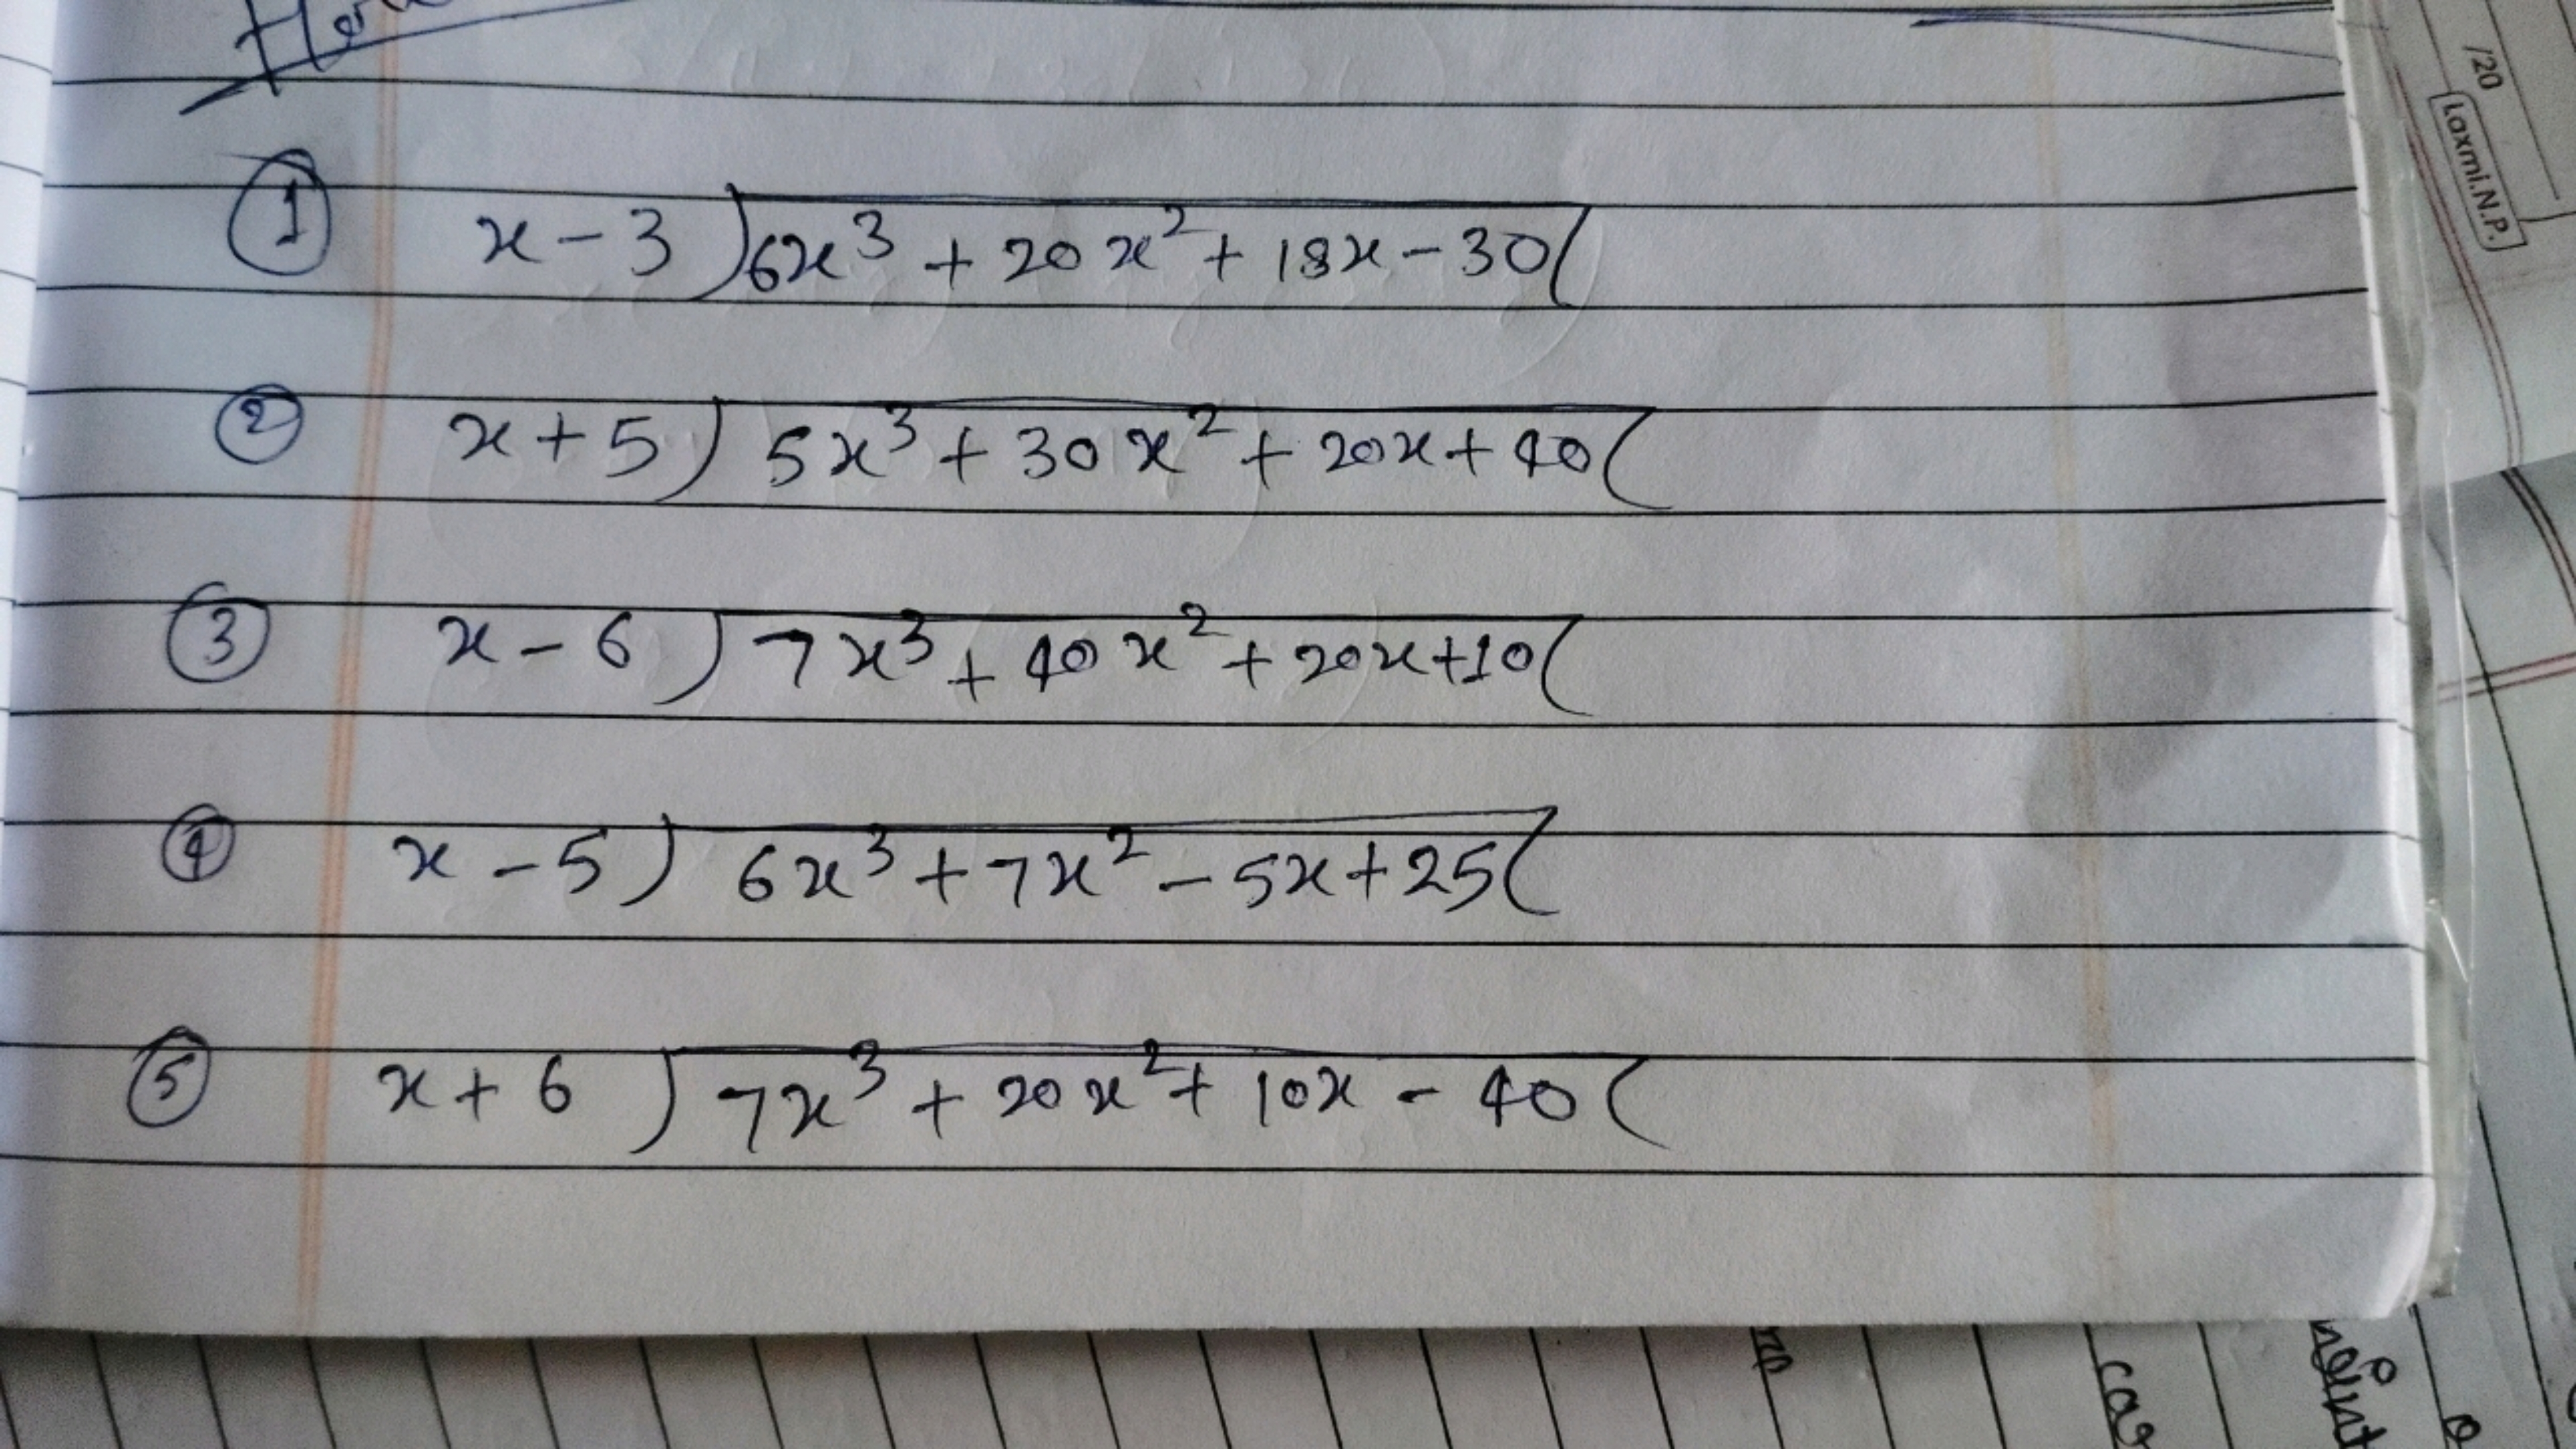 ① x - 3 ) 6x³ + 20x² + 18x - 30 (
② x + 5 ) 5x³ + 30x² + 20x + 40 (
③ x - 6 ) 7x³ + 40x² + 20x + 10 (
④ x - 5 ) 6x³ + 7x² - 5x + 25 (
⑤ x + 6 ) 7x³ + 20x² + 10x - 40 (
/20
Laxmi.N.P.